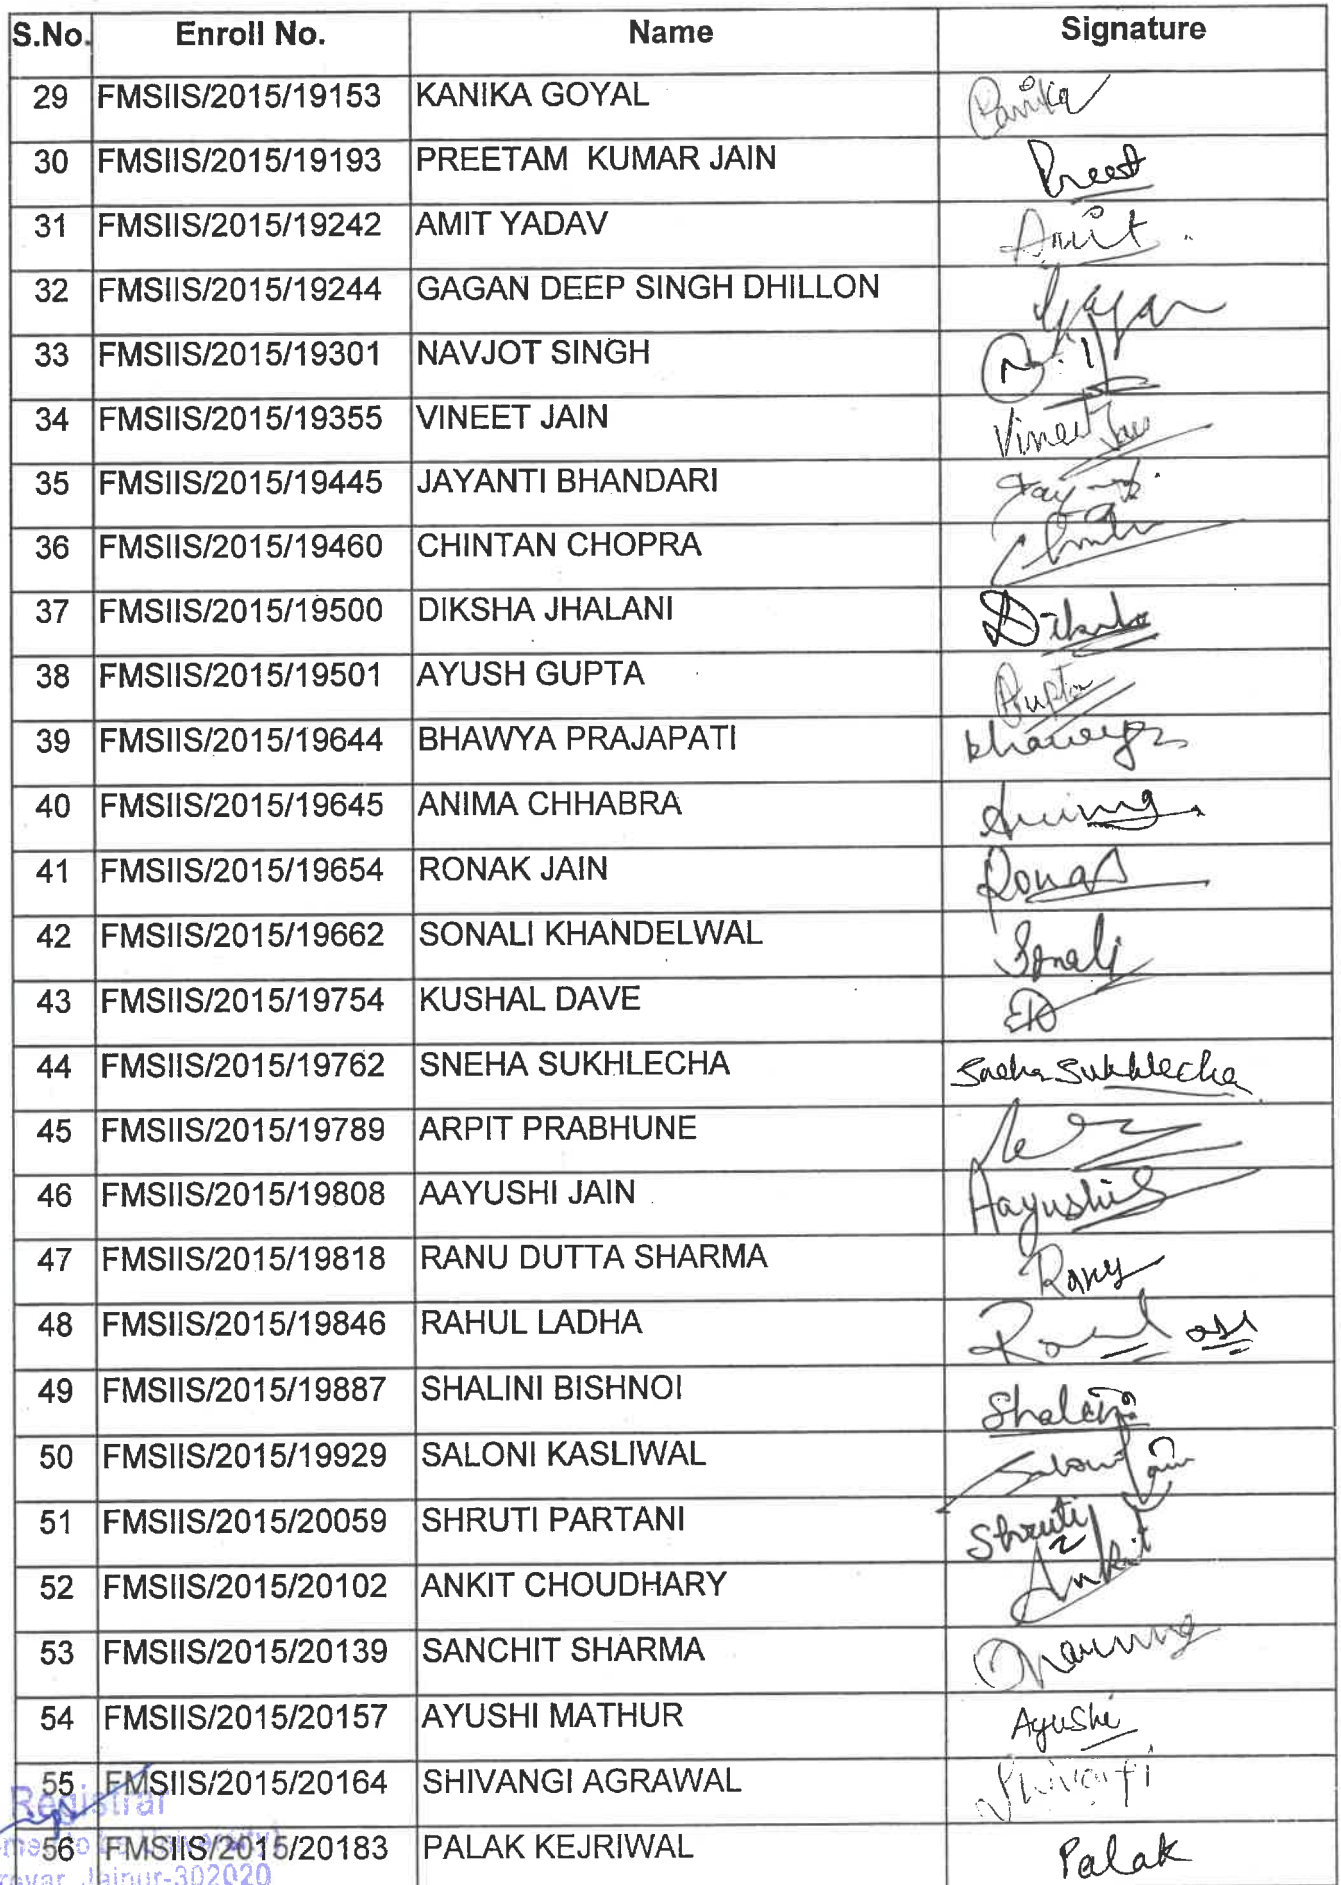 S.No. Enroll No. Name Signature
29 FMSIIS/2015/19153 KANIKA GOYAL
30 FMSIIS/2015/19193 PREETAM KUMAR JAIN Preet
31 FMSIIS/2015/19242 AMIT YADAV Amit
32 FMSIIS/2015/19244 GAGAN DEEP SINGH DHILLON Gagan
33 FMSIIS/2015/19301 NAVJOT SINGH
34 FMSIIS/2015/19355 VINEET JAIN Vineet Jain
35 FMSIIS/2015/19445 JAYANTI BHANDARI
36 FMSIIS/2015/19460 CHINTAN CHOPRA
37 FMSIIS/2015/19500 DIKSHA JHALANI Diksha
38 FMSIIS/2015/19501 AYUSH GUPTA Gupta
39 FMSIIS/2015/19644 BHAWYA PRAJAPATI bhawya
40 FMSIIS/2015/19645 ANIMA CHHABRA Anima
41 FMSIIS/2015/19654 RONAK JAIN Ronak
42 FMSIIS/2015/19662 SONALI KHANDELWAL Sonali
43 FMSIIS/2015/19754 KUSHAL DAVE
44 FMSIIS/2015/19762 SNEHA SUKHLECHA Sneha Sukhlecha
45 FMSIIS/2015/19789 ARPIT PRABHUNE
46 FMSIIS/2015/19808 AAYUSHI JAIN Aayushi
47 FMSIIS/2015/19818 RANU DUTTA SHARMA Ranu
48 FMSIIS/2015/19846 RAHUL LADHA
49 FMSIIS/2015/19887 SHALINI BISHNOI Shalini
50 FMSIIS/2015/19929 SALONI KASLIWAL Saloni
51 FMSIIS/2015/20059 SHRUTI PARTANI Shruti
52 FMSIIS/2015/20102 ANKIT CHOUDHARY Ankit
53 FMSIIS/2015/20139 SANCHIT SHARMA
54 FMSIIS/2015/20157 AYUSHI MATHUR Ayushi
55 FMSIIS/2015/20164 SHIVANGI AGRAWAL Shivangi
Registrar
56 FMSIIS/2015/20183 PALAK KEJRIWAL Palak
Jaipur-302020